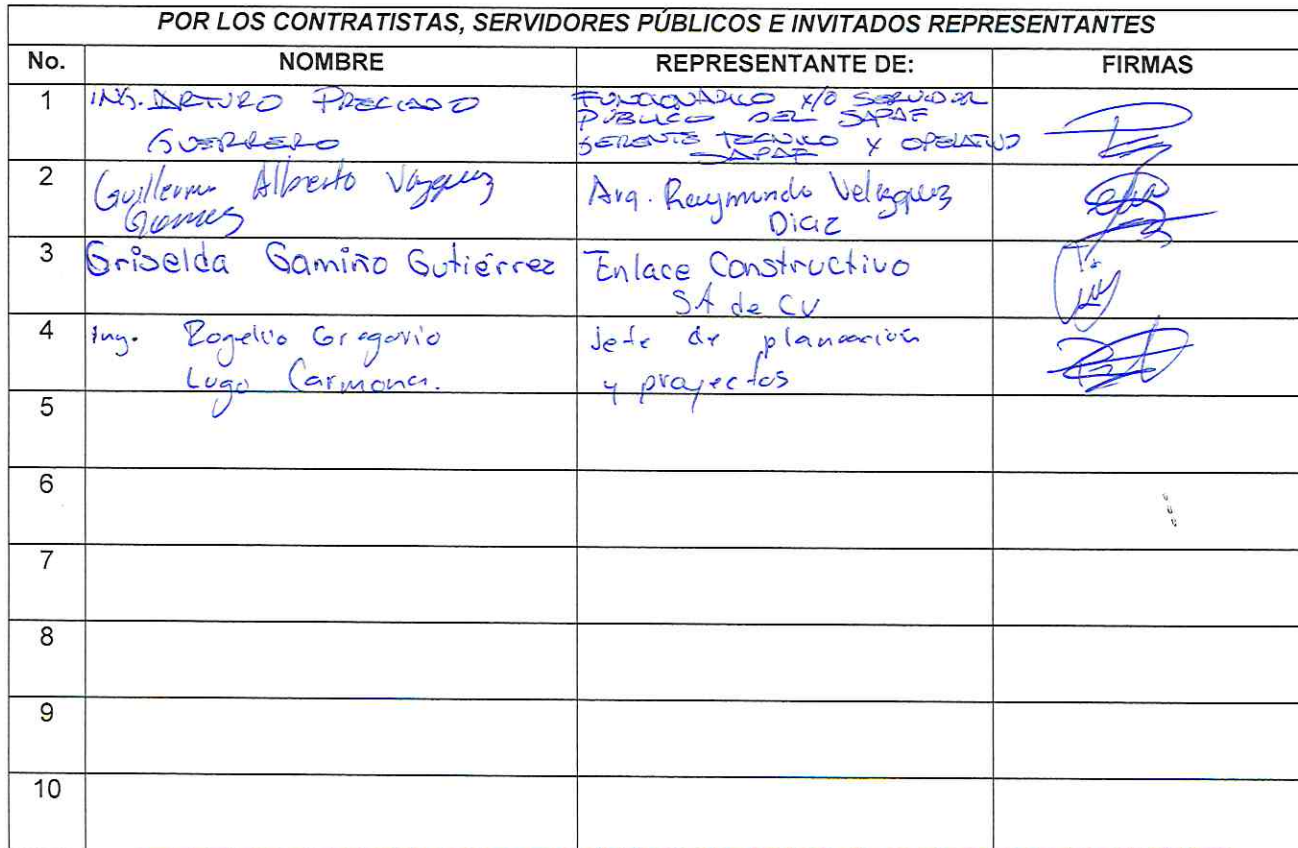 POR LOS CONTRATISTAS, SERVIDORES PÚBLICOS E INVITADOS REPRESENTANTES
No. NOMBRE REPRESENTANTE DE: FIRMAS
1 ING. ARTURO PRECIADO FUNCIONARIO Y/O SERVIDOR
PÚBLICO DEL SAPAF
GUERRERO GERENTE TECNICO Y OPERATIVO
SAPAF
2 Guillermo Alberto Vazquez Arq. Raymundo Velazquez
Gomez Diaz
3 Griselda Gamiño Gutiérrez Enlace Constructivo
SA de CV
4 Ing. Rogelio Gregorio Jefe de planeación
Lugo Carmona. y proyectos
5
6
7
8
9
10